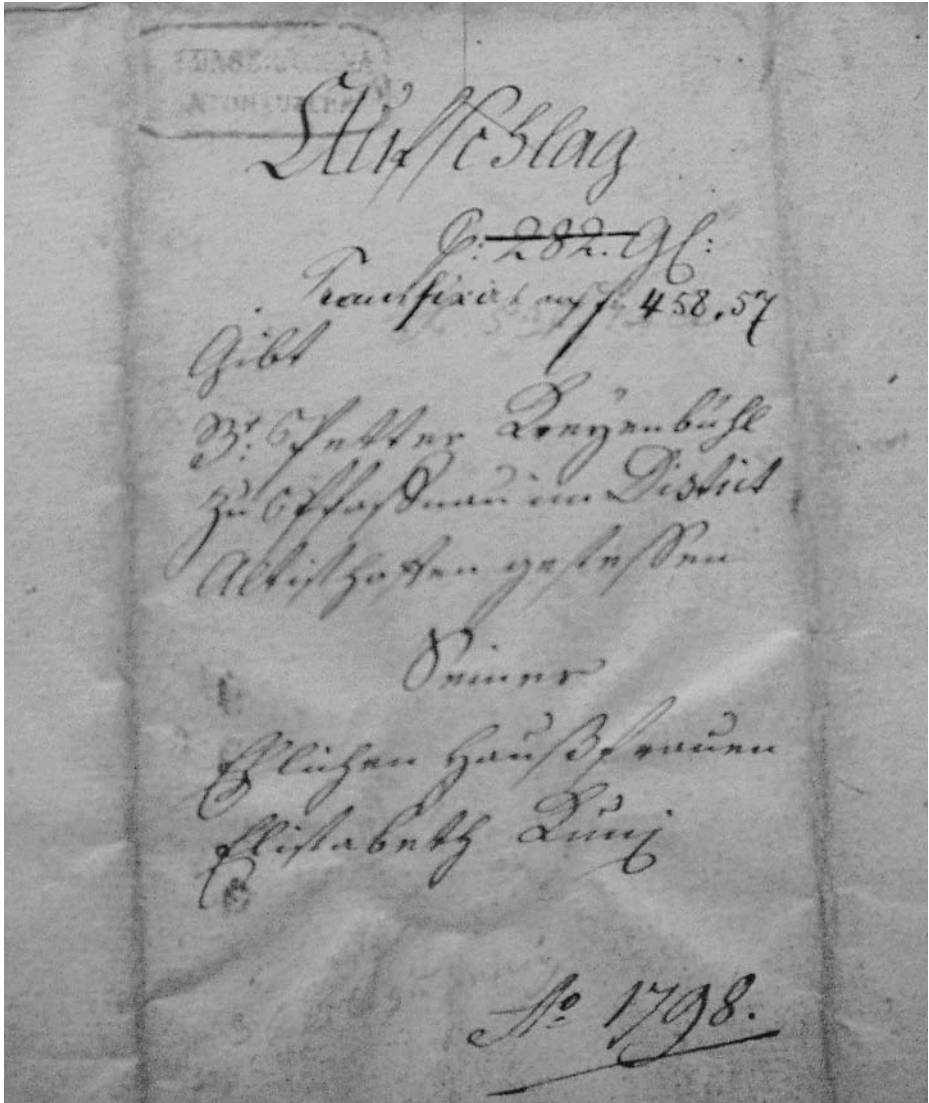 Auffschlag
P: 282. Gl:
Transfixirt auf f. 458.57
Gibt
Br. Petter Kreyenbühl
zu Pfaffnau im District
Altishoffen gesessen
Seiner
Ehlichen Haußfrauen
Elisabeth Kunz
Aº 1798.